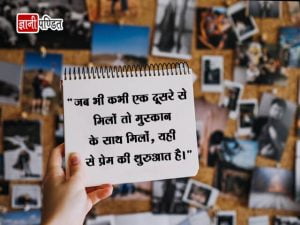 ज्ञानी
पण्डित
"जब भी कभी एक दूसरे से
मिलों तो मुस्कान
के साथ मिलों, यही
से प्रेम की शुरुआत है।"